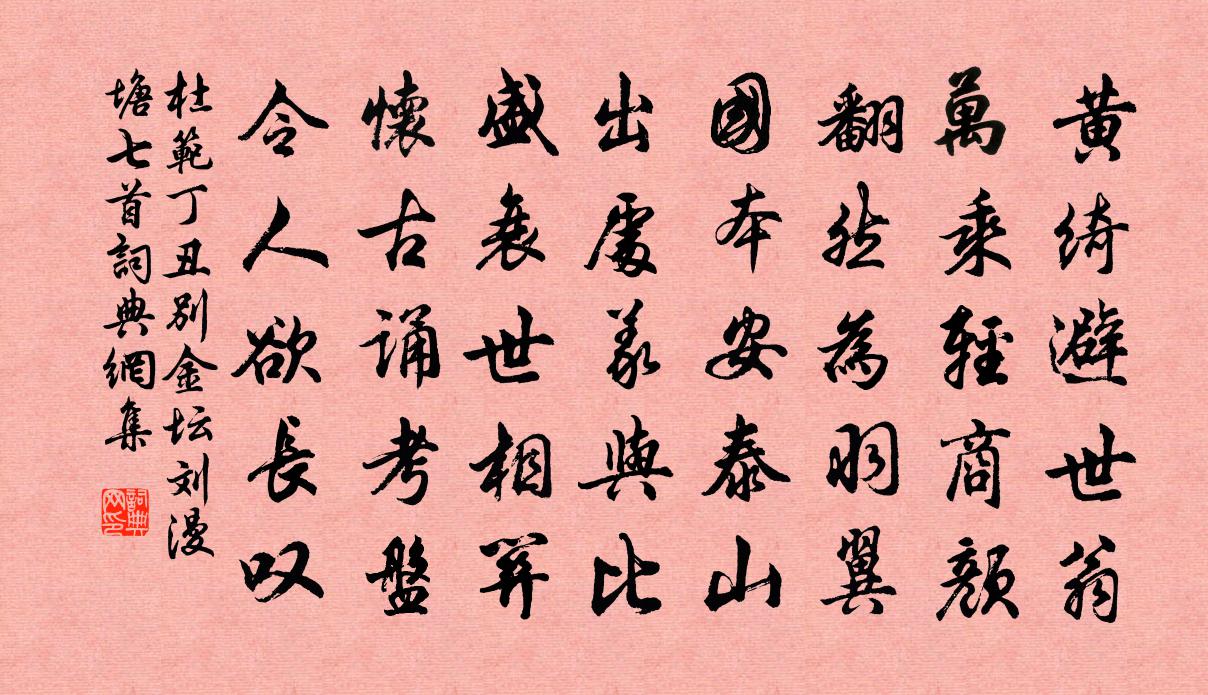 黄绮避世翁
萬乘輕商顏
翻然為羽翼
國本安泰山
出處義與比
盛衰世相關
懷古诵考盤
令人欲長叹
杜範丁丑别金坛刘漫
塘七首詞典網集
詞典网印